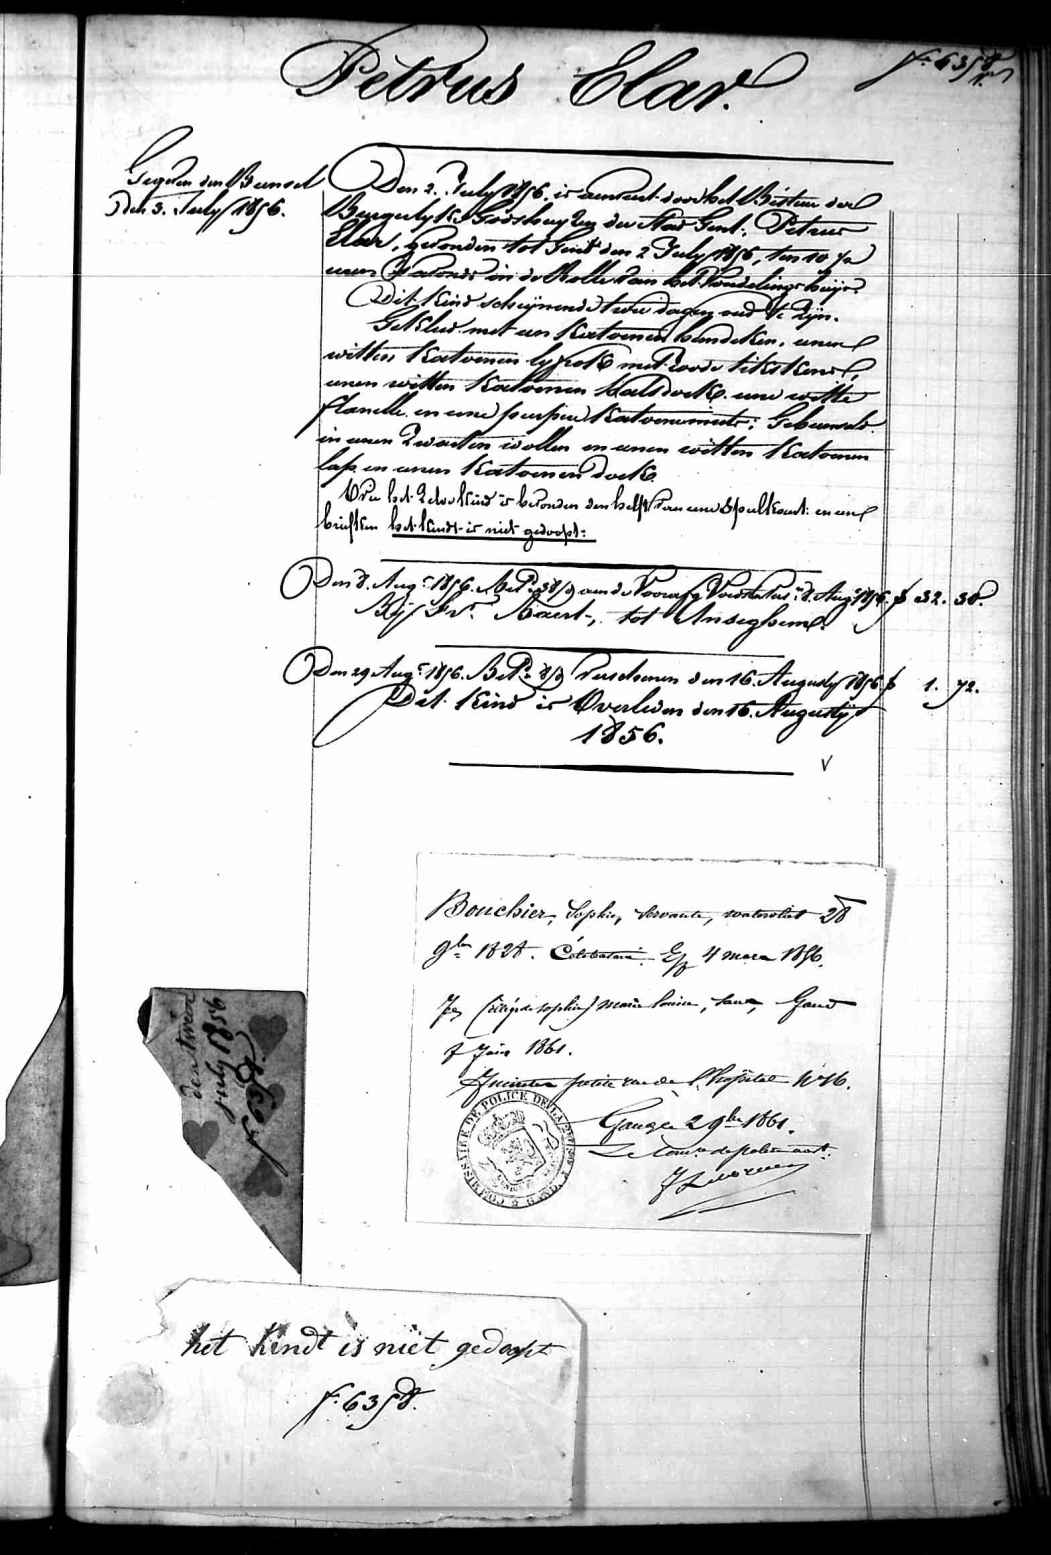 Petrus Elav.
f° 6358
Gegeven den Bunsel
den 3. July 1856.
Den 2. July 1856. is aenveert door het Bistier der
Burgerlyke Godshuyzen der Stad Gent, Petrus
Elav, gevonden tot Gent den 2 July 1856, ten 10 ¼
uren 's avonds in de Rolle van het Vondelingshuys.
Dit kind scheynende twee dagen oud te zyn.
Gekleed met een katoenen hemdeken, eenen
witten katoenen lyfrok met roode tikskens,
eenen witten katoenen halsdoek, eene witte
flanelle en eene purpere katoene muts; Gebunseld
in eenen zwarten wollen en eenen witten katoenen
lap en eenen katoenen doek.
Van het zelve kind is bevonden den helft van eene speelkaart en een
briefken het kindt is niet gedoopt.
Den 8. Aug. 1856. Bet. aen de Voorafg. Voedster 8. Aug. 1856. f 32. 38.
By Fr. Baert, tot Anseghem.
Den 29 Aug. 1856. Bet. Verschenen den 16. Augusty 1856 f 1. 72.
Dit kind is Overleden den 16. Augusty
1856.
V
Bouchier, Sophie, Servante, Watervliet 28
9bre 1828. Célibataire. 4 mars 1856.
(illég. de Sophie) Marie Louise, Gand
7 Juin 1861.
petite rue de l'hôpital N° 16.
Gand le 2 9bre 1861.
Le Comre de police
COMMISSAIRE DE POLICE DE LA
den tweeden
july 1856
f° 6358
het kindt is niet gedoopt
f° 6358.